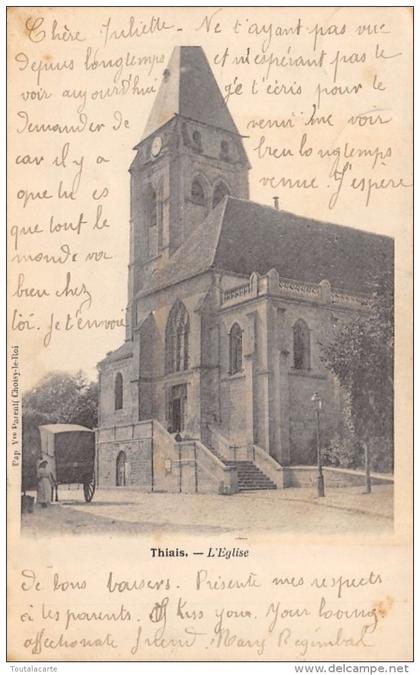 Chère Juliette - Ne t'ayant pas vue
depuis longtemps et m'espérant pas le
voir aujourd'hui je t'écris pour le
demander de venir me voir
car il y a bien longtemps
que tu es venue. J'espère
que tout le
monde va
bien chez
toi. Je t'envoie
de bons baisers. Présente mes respects
à tes parents. I kiss you. Your loving
affectionate friend. Mary Regimbal
Thiais. — L'Eglise
Pap. Vve Parent, Choisy-le-Roi
© Toutalacarte